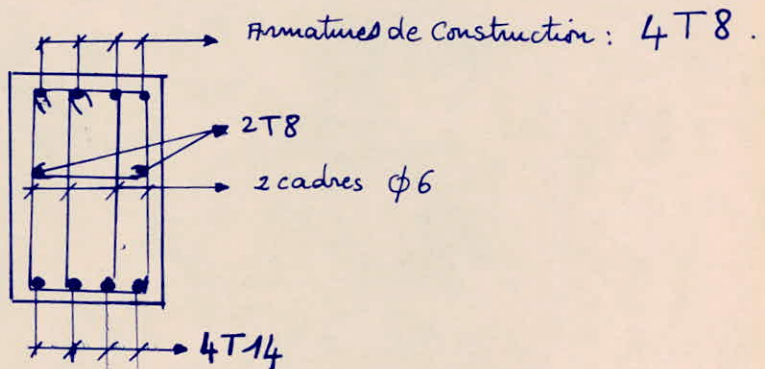 Armatures de Construction : 4T8.
2T8
2 cadres φ6
4T14